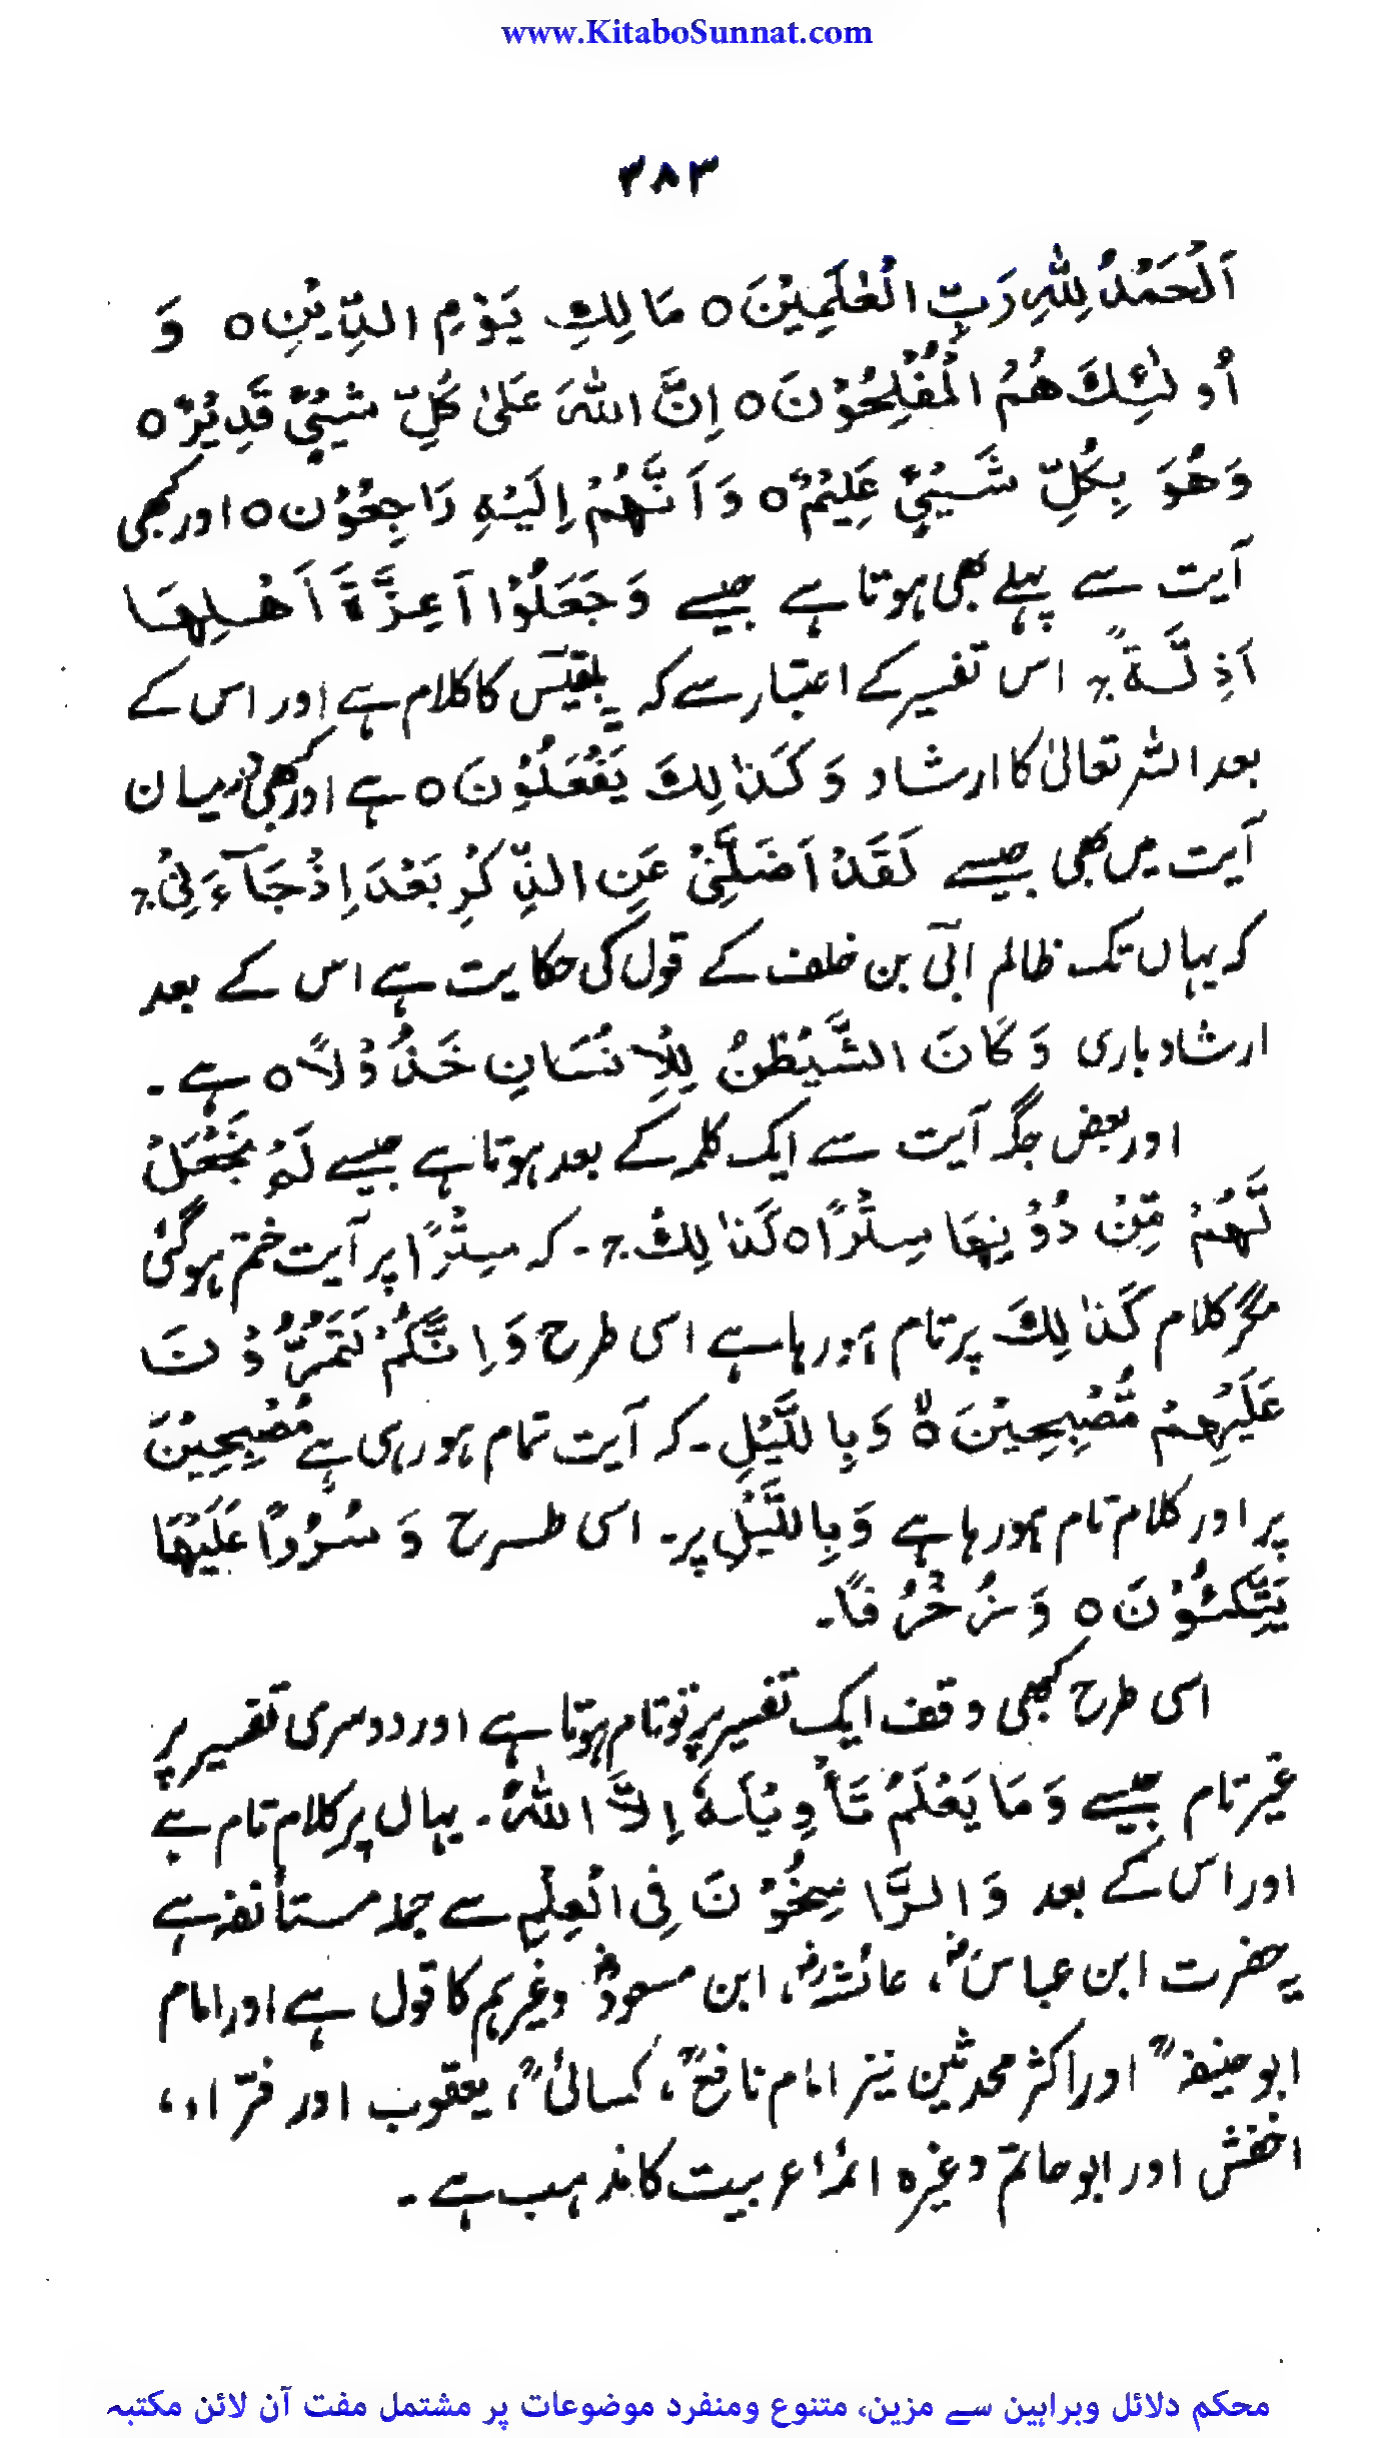 www.KitaboSunnat.com
۳۸۳
اَلْحَمْدُ لِلّٰهِ رَبِّ الْعٰلَمِيْنَ ○ مَالِكِ يَوْمِ الدِّيْنِ ○ وَ
اُولٰئِكَ هُمُ الْمُفْلِحُوْنَ ○ اِنَّ اللّٰهَ عَلىٰ كُلِّ شَيْئٍ قَدِيْرٌ ○
وَهُوَ بِكُلِّ شَيْئٍ عَلِيْمٌ ○ وَاَنَّهُمْ اِلَيْهِ رَاجِعُوْن ○ اور کبھی
آیت سے پہلے بھی ہوتا ہے جیسے وَجَعَلُوْا اَعِزَّةَ اَهْلِهَا
اَذِلَّةً ؕ اس تفسیر کے اعتبار سے کہ یہ بلقیس کا کلام ہے اور اس کے
بعد اللہ تعالیٰ کا ارشاد وَكَذٰلِكَ يَفْعَلُوْنَ ○ ہے اور کبھی درمیان
آیت میں بھی جیسے لَقَدْ اَضَلَّنِيْ عَنِ الذِّكْرِ بَعْدَ اِذْ جَآءَنِيْ ؕ
کہ یہاں تک ظالم ابی بن خلف کے قول کی حکایت ہے اس کے بعد
ارشاد باری وَكَانَ الشَّيْطٰنُ لِلْاِنْسَانِ خَذُوْلًا ○ ہے ۔
اور بعض جگہ آیت سے ایک کلمہ کے بعد ہوتا ہے جیسے لَمْ نَجْعَلْ
لَّهُمْ مِّنْ دُوْنِهَا سِتْرًا ○ كَذٰلِكَ ؕ ۔ کہ سِتْرًا پر آیت ختم ہو گئی
مگر کلام كَذٰلِكَ پر تام ہو رہا ہے اسی طرح وَاِنَّكُمْ لَتَمُرُّوْنَ
عَلَيْهِمْ مُّصْبِحِيْنَ ○ وَبِاللَّيْلِ ۔ کہ آیت تمام ہو رہی ہے مُصْبِحِيْنَ
پر اور کلام تام ہو رہا ہے وَبِاللَّيْلِ پر ۔ اسی طرح وَ سُرُرًا عَلَيْهَا
يَتَّكِئُوْنَ ○ وَزُخْرُفًا ۔
اسی طرح کبھی وقف ایک تفسیر پر تو تام ہوتا ہے اور دوسری تفسیر پر
غیر تام جیسے وَمَا يَعْلَمُ تَأْوِيْلَهٗ اِلَّا اللّٰهُ ۔ یہاں پر کلام تام ہے
اور اس کے بعد وَالرَّاسِخُوْنَ فِي الْعِلْمِ سے جملہ مستأنفہ ہے
یہ حضرت ابن عباسؓ، عائشہؓ، ابن مسعودؓ وغیرہم کا قول ہے اور امام
ابو حنیفہؒ اور اکثر محدثین نیز امام نافعؒ، کسائیؒ، یعقوب اور فرّاء،
اخفش اور ابو حاتم وغیرہ ائمۂ عربیت کا مذہب ہے ۔
محکم دلائل وبراہین سے مزین، متنوع ومنفرد موضوعات پر مشتمل مفت آن لائن مکتبہ